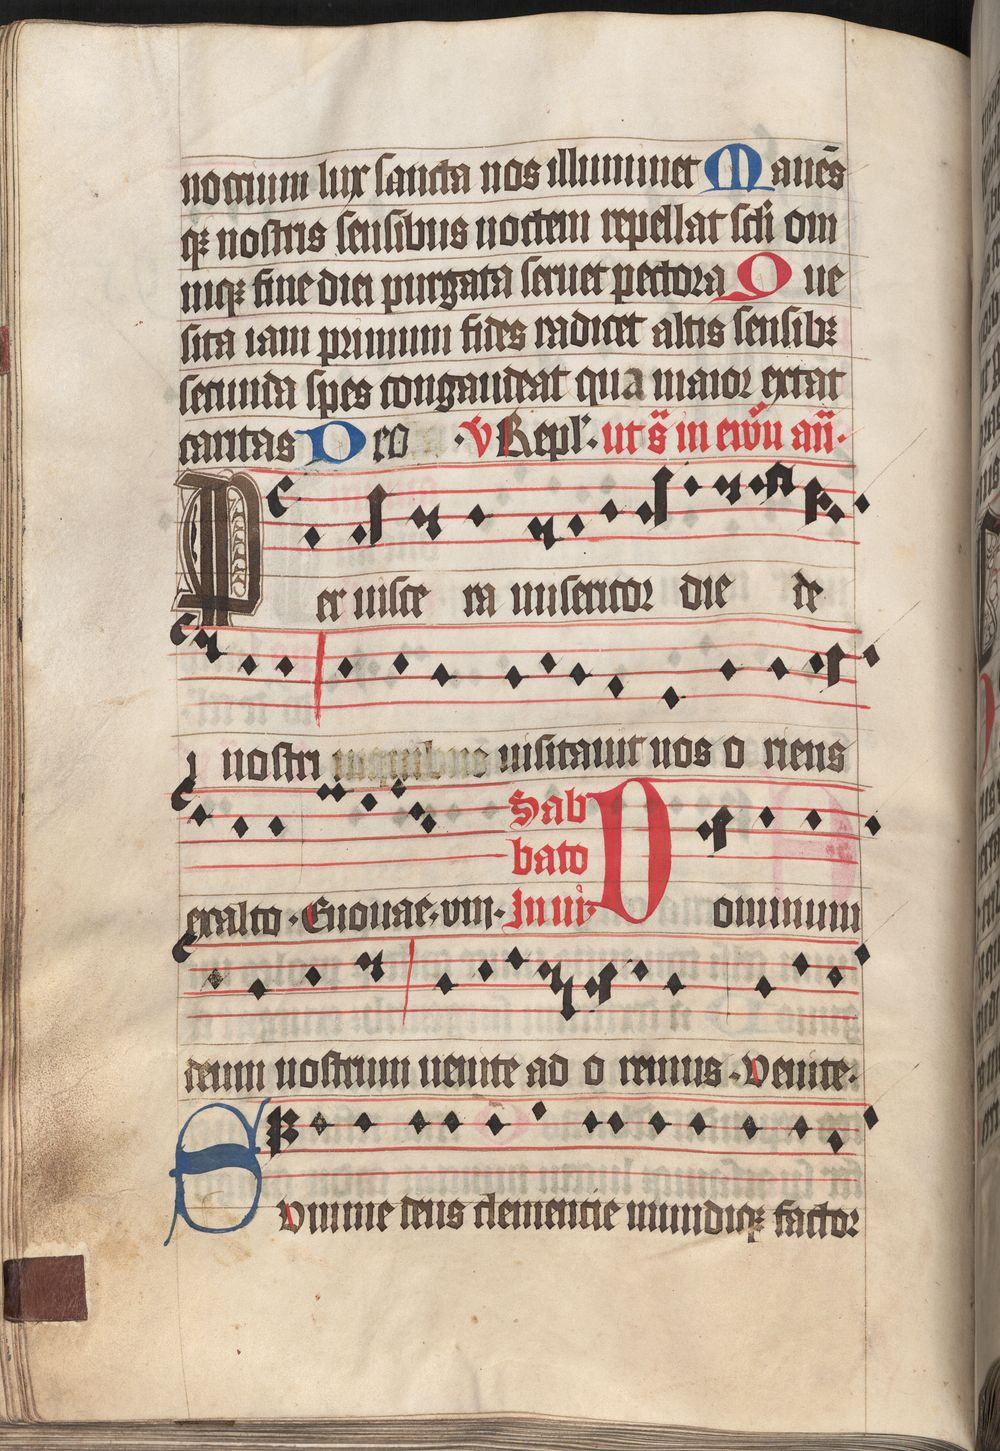 noctium lux sancta nos illuminet Manēs
qꝫ nostris sensibus noctem repellat scli om
niqꝫ fine diei purgata seruet pectora Que
sita iam primum fides radicet altis sensibꝫ
secunda spes congaudeat qua maior extat
caritas Deo ·V Repl'· ut s̄ in ewū an̄·
Per uisce ra misericor die de
i nostri in quibus uisitauit nos o riens
exalto · Euouae · viii · Sab
bato
In ui· Dominum
deum nostrum uenite ad o remus · Venite ·
Summe deus clemencie mundiqꝫ factor